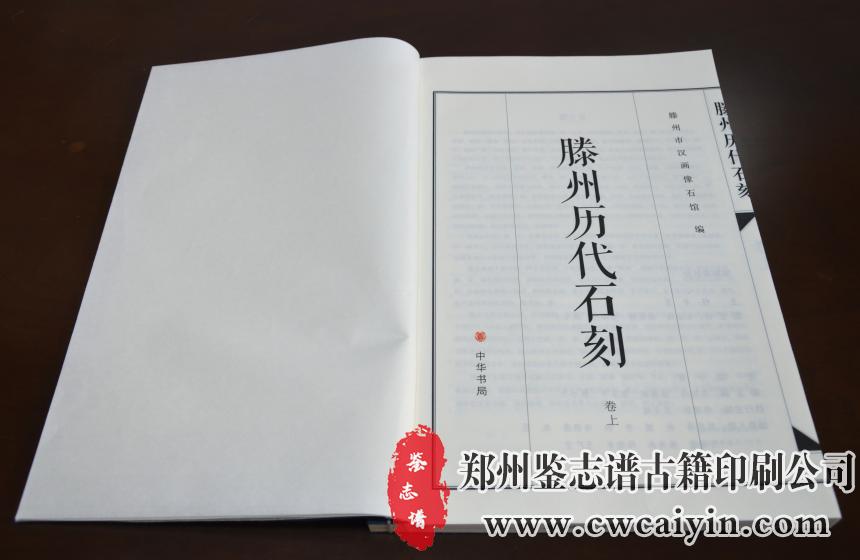 滕州市汉画像石馆 编
滕州历代石刻
卷上
中华书局
滕州历代石刻
鉴志谱
郑州鉴志谱古籍印刷公司
www.cwcaiyin.com